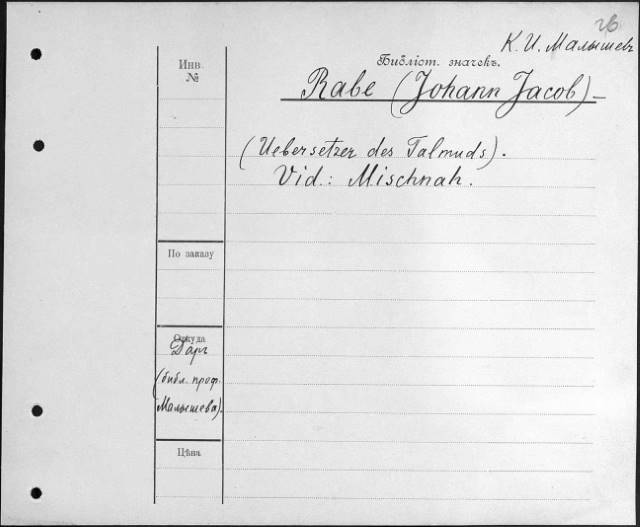 26
К. И. Малышев
Библіот. значекъ.
Инв.
№
Rabe (Johann Jacob)—
(Uebersetzer des Talmuds).
Vid.: Mischnah.
По заказу
Откуда
Даръ
(библ. проф.
Малышева).
Цѣна